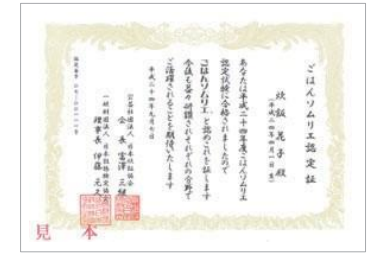 ごはんソムリエ認定証
炊飯 花子 殿
(平成二四年四月一日 生)
あなたは平成二十四年度ごはんソムリエ
認定試験に合格されましたので
ごはんソムリエ と認めこれを証します
今後も益々研鑽されそれぞれの分野で
ご活躍されることを期待いたします
平成二十四年九月七日
公益社団法人 日本炊飯協会
会長 富澤 三継
一般財団法人 日本穀物検定協会
理事長 伊藤 元久
見本